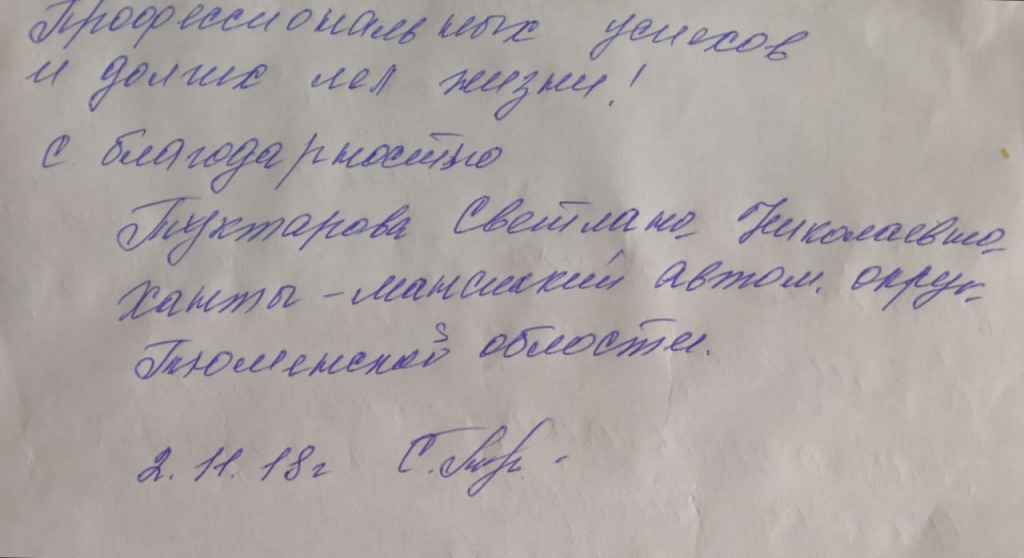 Профессиональных успехов
и долгих лет жизни!
с благодарностью
Туктарова Светлана Николаевна
Ханты-мансийский автом. округ
Тюменской области.
2.11.18г С.Тук